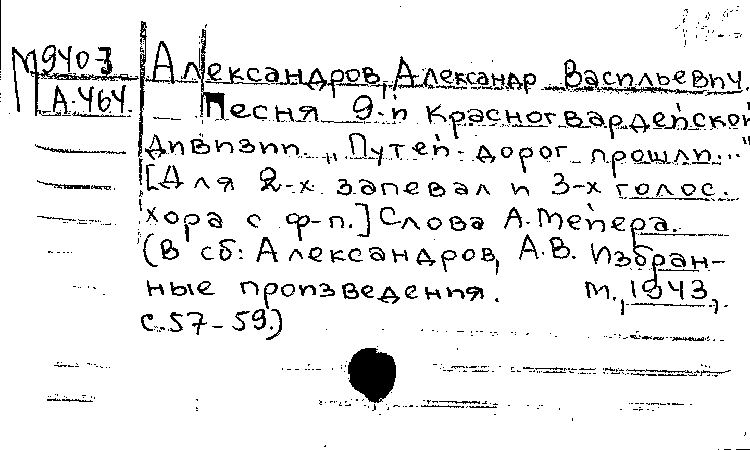 М940-3 Александров, Александр Васильевич.
А-464. Песня 9-й Красногвардейской
дивизии. „Путей-дорог прошли..."
[Для 2-х запевал и 3-х голос.
хора с ф-п.] Слова А. Мейера.
(В сб: Александров, А.В. Избран-
ные произведения. М., 1943,
с.57-59.)